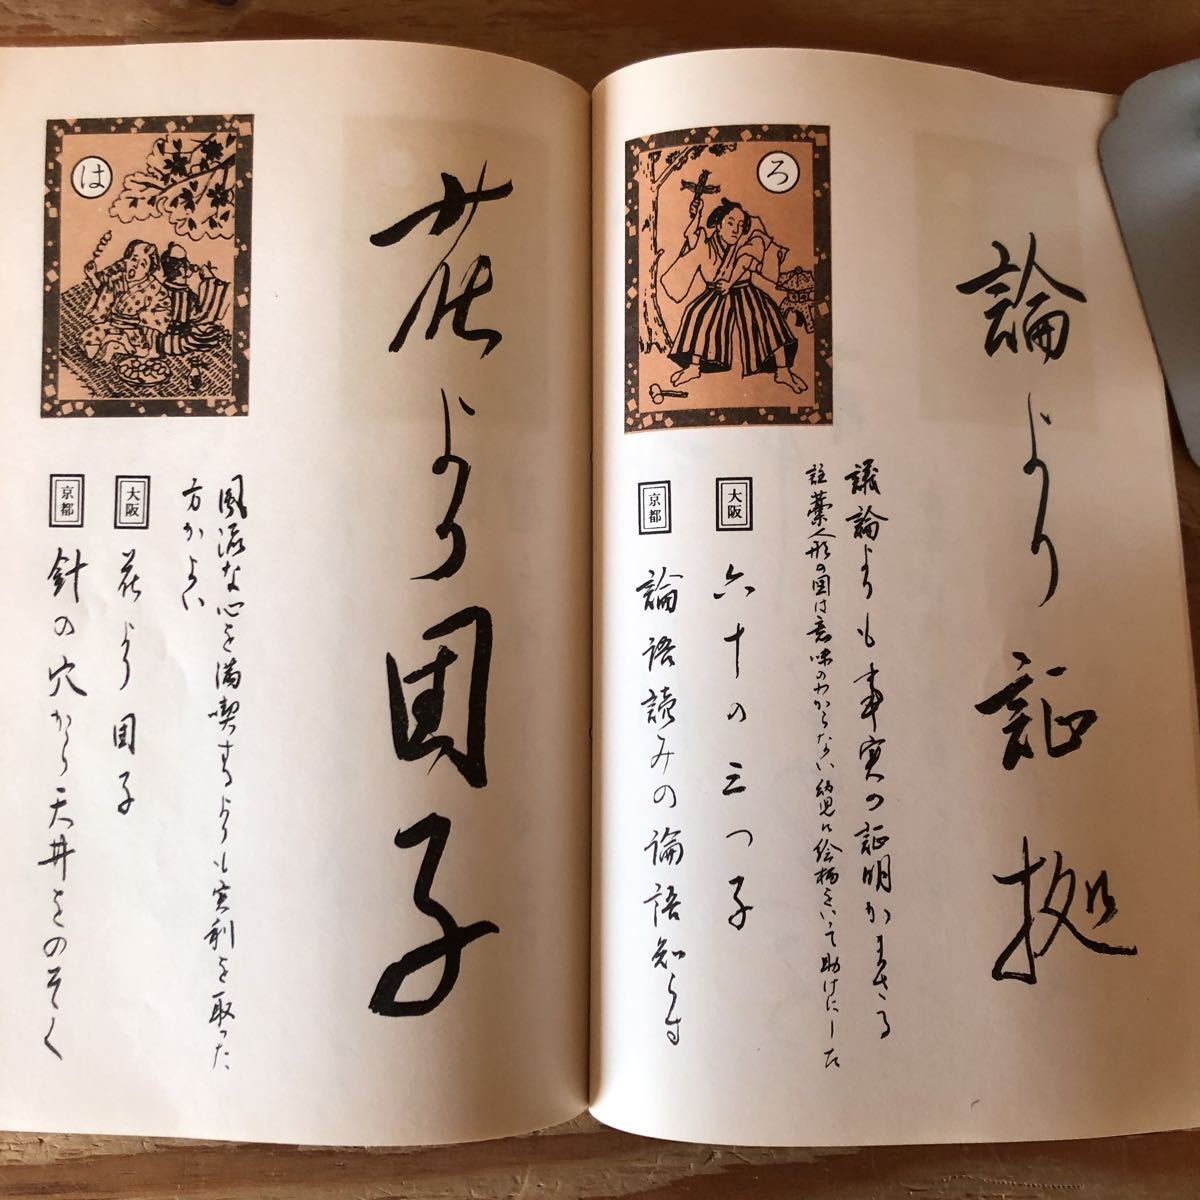 論より証拠
ろ
議論よりも事実の証明がまさる
註 藁人形の図は意味のわからない幼児に絵柄をいって助けにした
大阪
六十の三つ子
京都
論語読みの論語知らず
花より団子
は
風流な心を満喫するよりも実利を取った
方がよい
大阪
花より団子
京都
針の穴から天井をのぞく